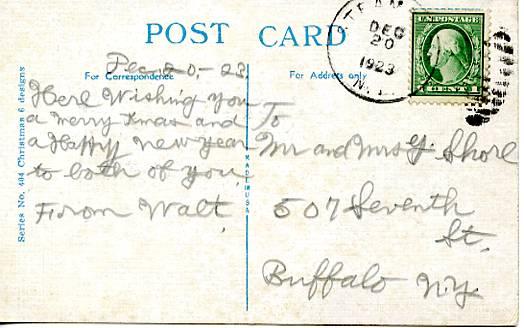 POST CARD
For Correspondence
For Address only
Dec 20-23.
Here Wishing you
a merry Xmas and
a Happy new year
to both of you
From Walt
To
Mr and Mrs Y. Shorl
507 Seventh
St.
Buffalo N.Y.
Series No. 404 Christmas 6 designs
MADE IN USA
DEC
20
1923
N.Y.
U.S. POSTAGE